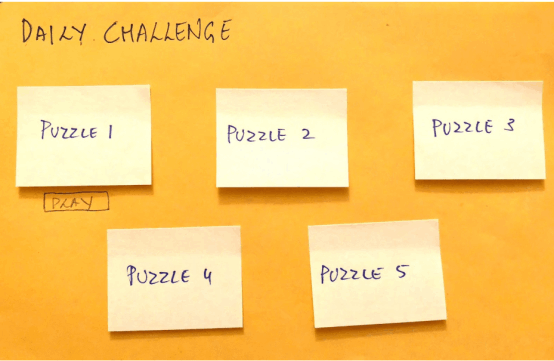 DAILY CHALLENGE
PUZZLE 1
PUZZLE 2
PUZZLE 3
PLAY
PUZZLE 4
PUZZLE 5